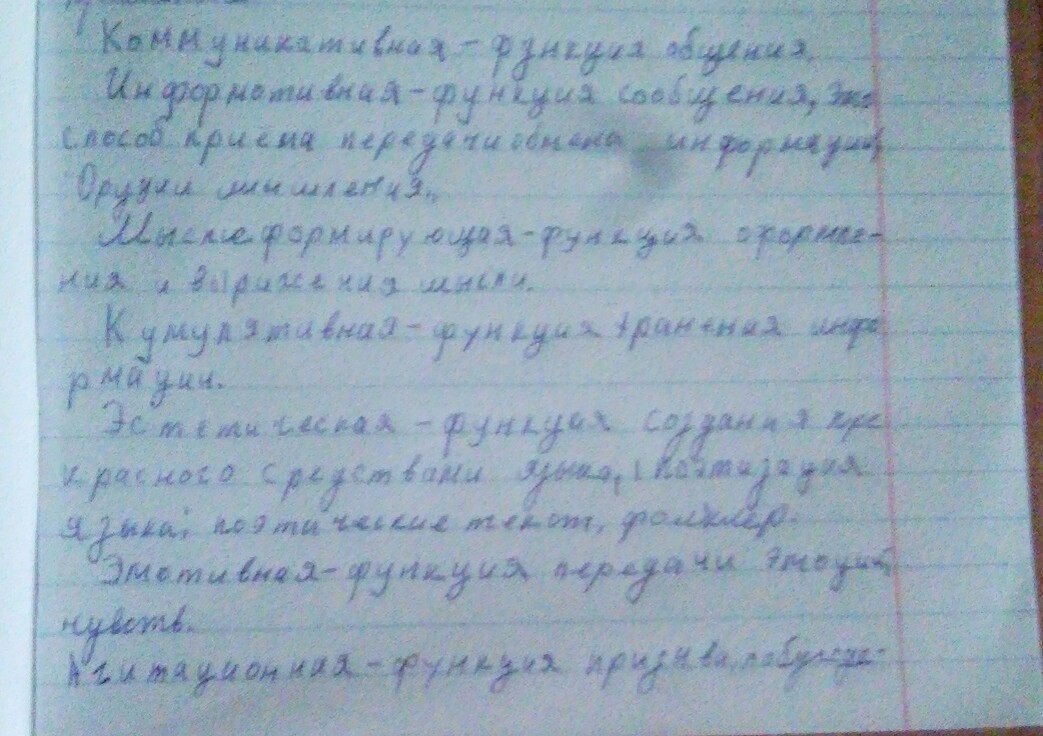 Коммуникативная – функция общения.
Информативная – функция сообщения, это
способ приёма передачи обмена информации,
Орудия мышления.
Мыслеформирующая – функция оформле-
ния и выражения мысли.
Кумулятивная – функция хранения инфо
рмации.
Эстетическая – функция создания пре
красного средствами языка, поэтизация
языка; поэтические текст, фольклор.
Эмотивная – функция передачи эмоций,
чувств.
Агитационная – функция призыва, побужде-